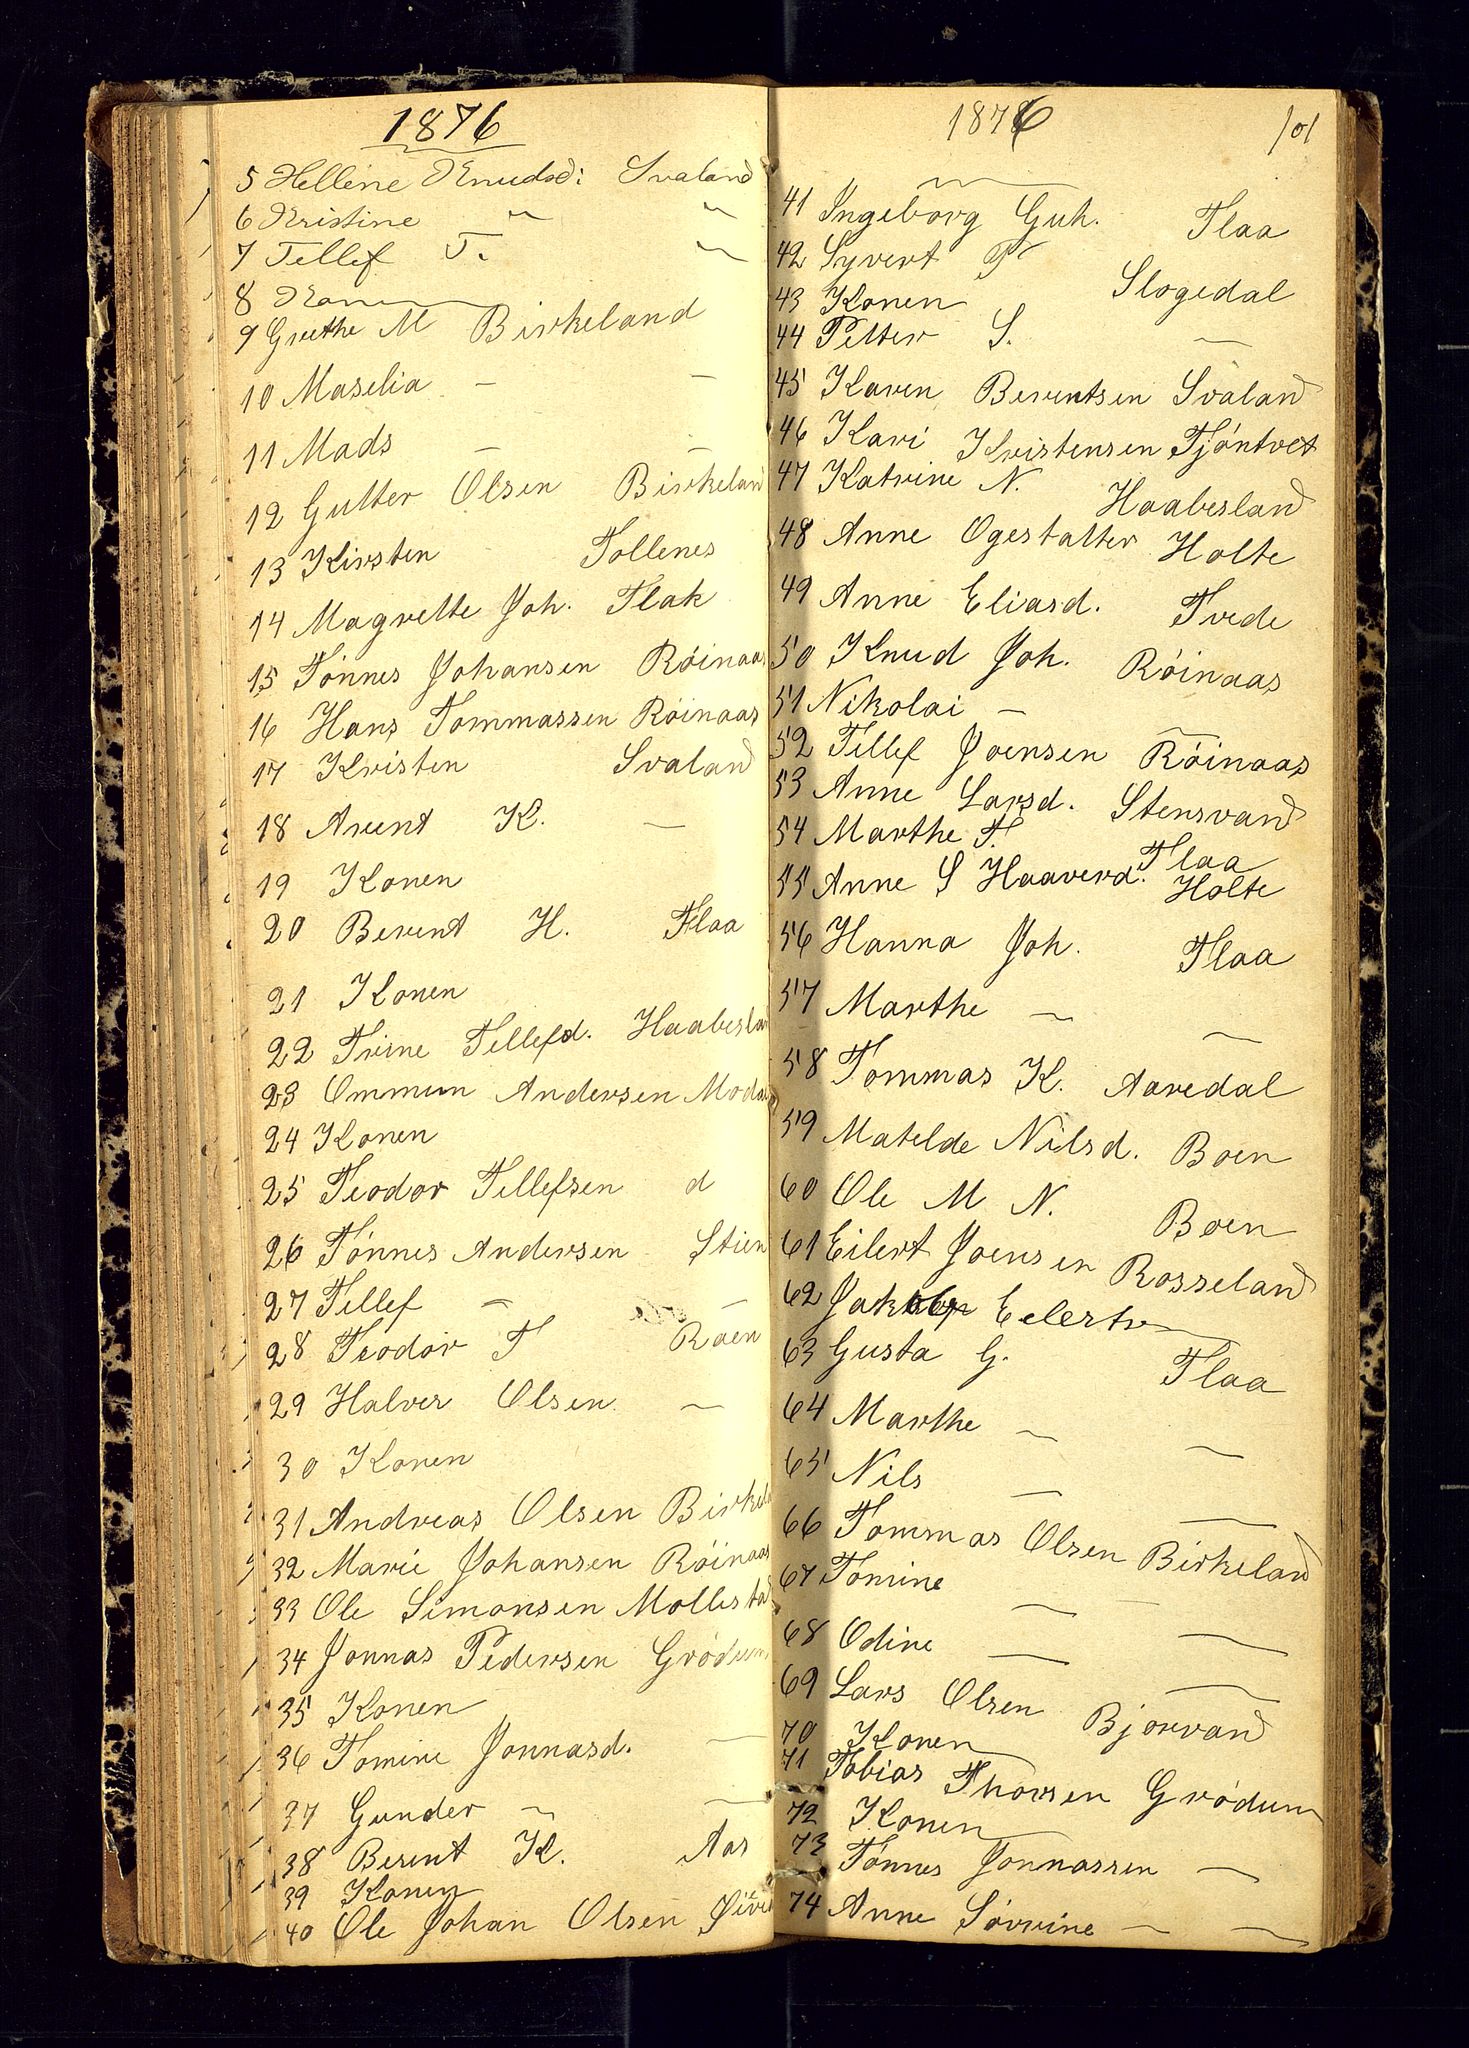 1876
5 Hellene Knudsd: Svaland
6 Kristine " "
7 Tellef T. "
8 Konen
9 Grethe M Birkeland
10 Maselia - -
11 Mads - -
12 Gutter Olsen Birkeland
13 Kirsten Tollenes
14 Magrette Joh. Flak
15 Tönnes Johansen Röinaas
16 Hans Tommassen Röinaas
17 Kristen Svaland
18 Arent K. -
19 Konen
20 Berent H. Flaa
21 Konen
22 Trine Tellefd. Haabesla
23 Ommun Andersen Moda
24 Konen
25 Teodor Tellefsen d
26 Tönnes Andersen Stien
27 Tellef - -
28 Teodor T Roen
29 Halver Olsen -
30 Konen
31 Andreas Olsen Birkela
32 Marie Johansen Röinaas
33 Ole Simonsen Mollestad
34 Jonnas Pedersen Grödum
35 Konen
36 Tomine Jonnasd. -
37 Gunder - -
38 Berent K. Aas
39 Konen
40 Ole Johan Olsen
1876 101
41 Ingeborg Guh. Flaa
42 Syvert T Slogedal
43 Konen
44 Petter S. -
45 Karen Berentsen Svaland
46 Kari Kristensen Tjöntvet
47 Katrine N. Haabesland
48 Anne Ogestatter Holte
49 Anne Eliasd. Tvede
50 Knud Joh. Röinaas
51 Nikolai - -
52 Tellef Joensen Röinaas
53 Anne Larsd. Stensvand
54 Marthe T. Flaa
55 Anne S Haaverd. Holte
56 Hanna Joh. Flaa
57 Marthe - -
58 Tommas K. Aaredal
59 Matelde Nilsd. Boen
60 Ole M N. Boen
61 Eilert Joensen Rosseland
62 Eelerts
63 Gusta G. Flaa
64 Marthe - -
65 Nils - -
66 Tommas Olsen Birkeland
67 Tomine - -
68 Odine - -
69 Lars Olsen Bjorvand
70 Konen
71 Tobias Thorsen Grödum
72 Konen
73 Tönnes Jonnassen -
74 Anne Sörrine - -